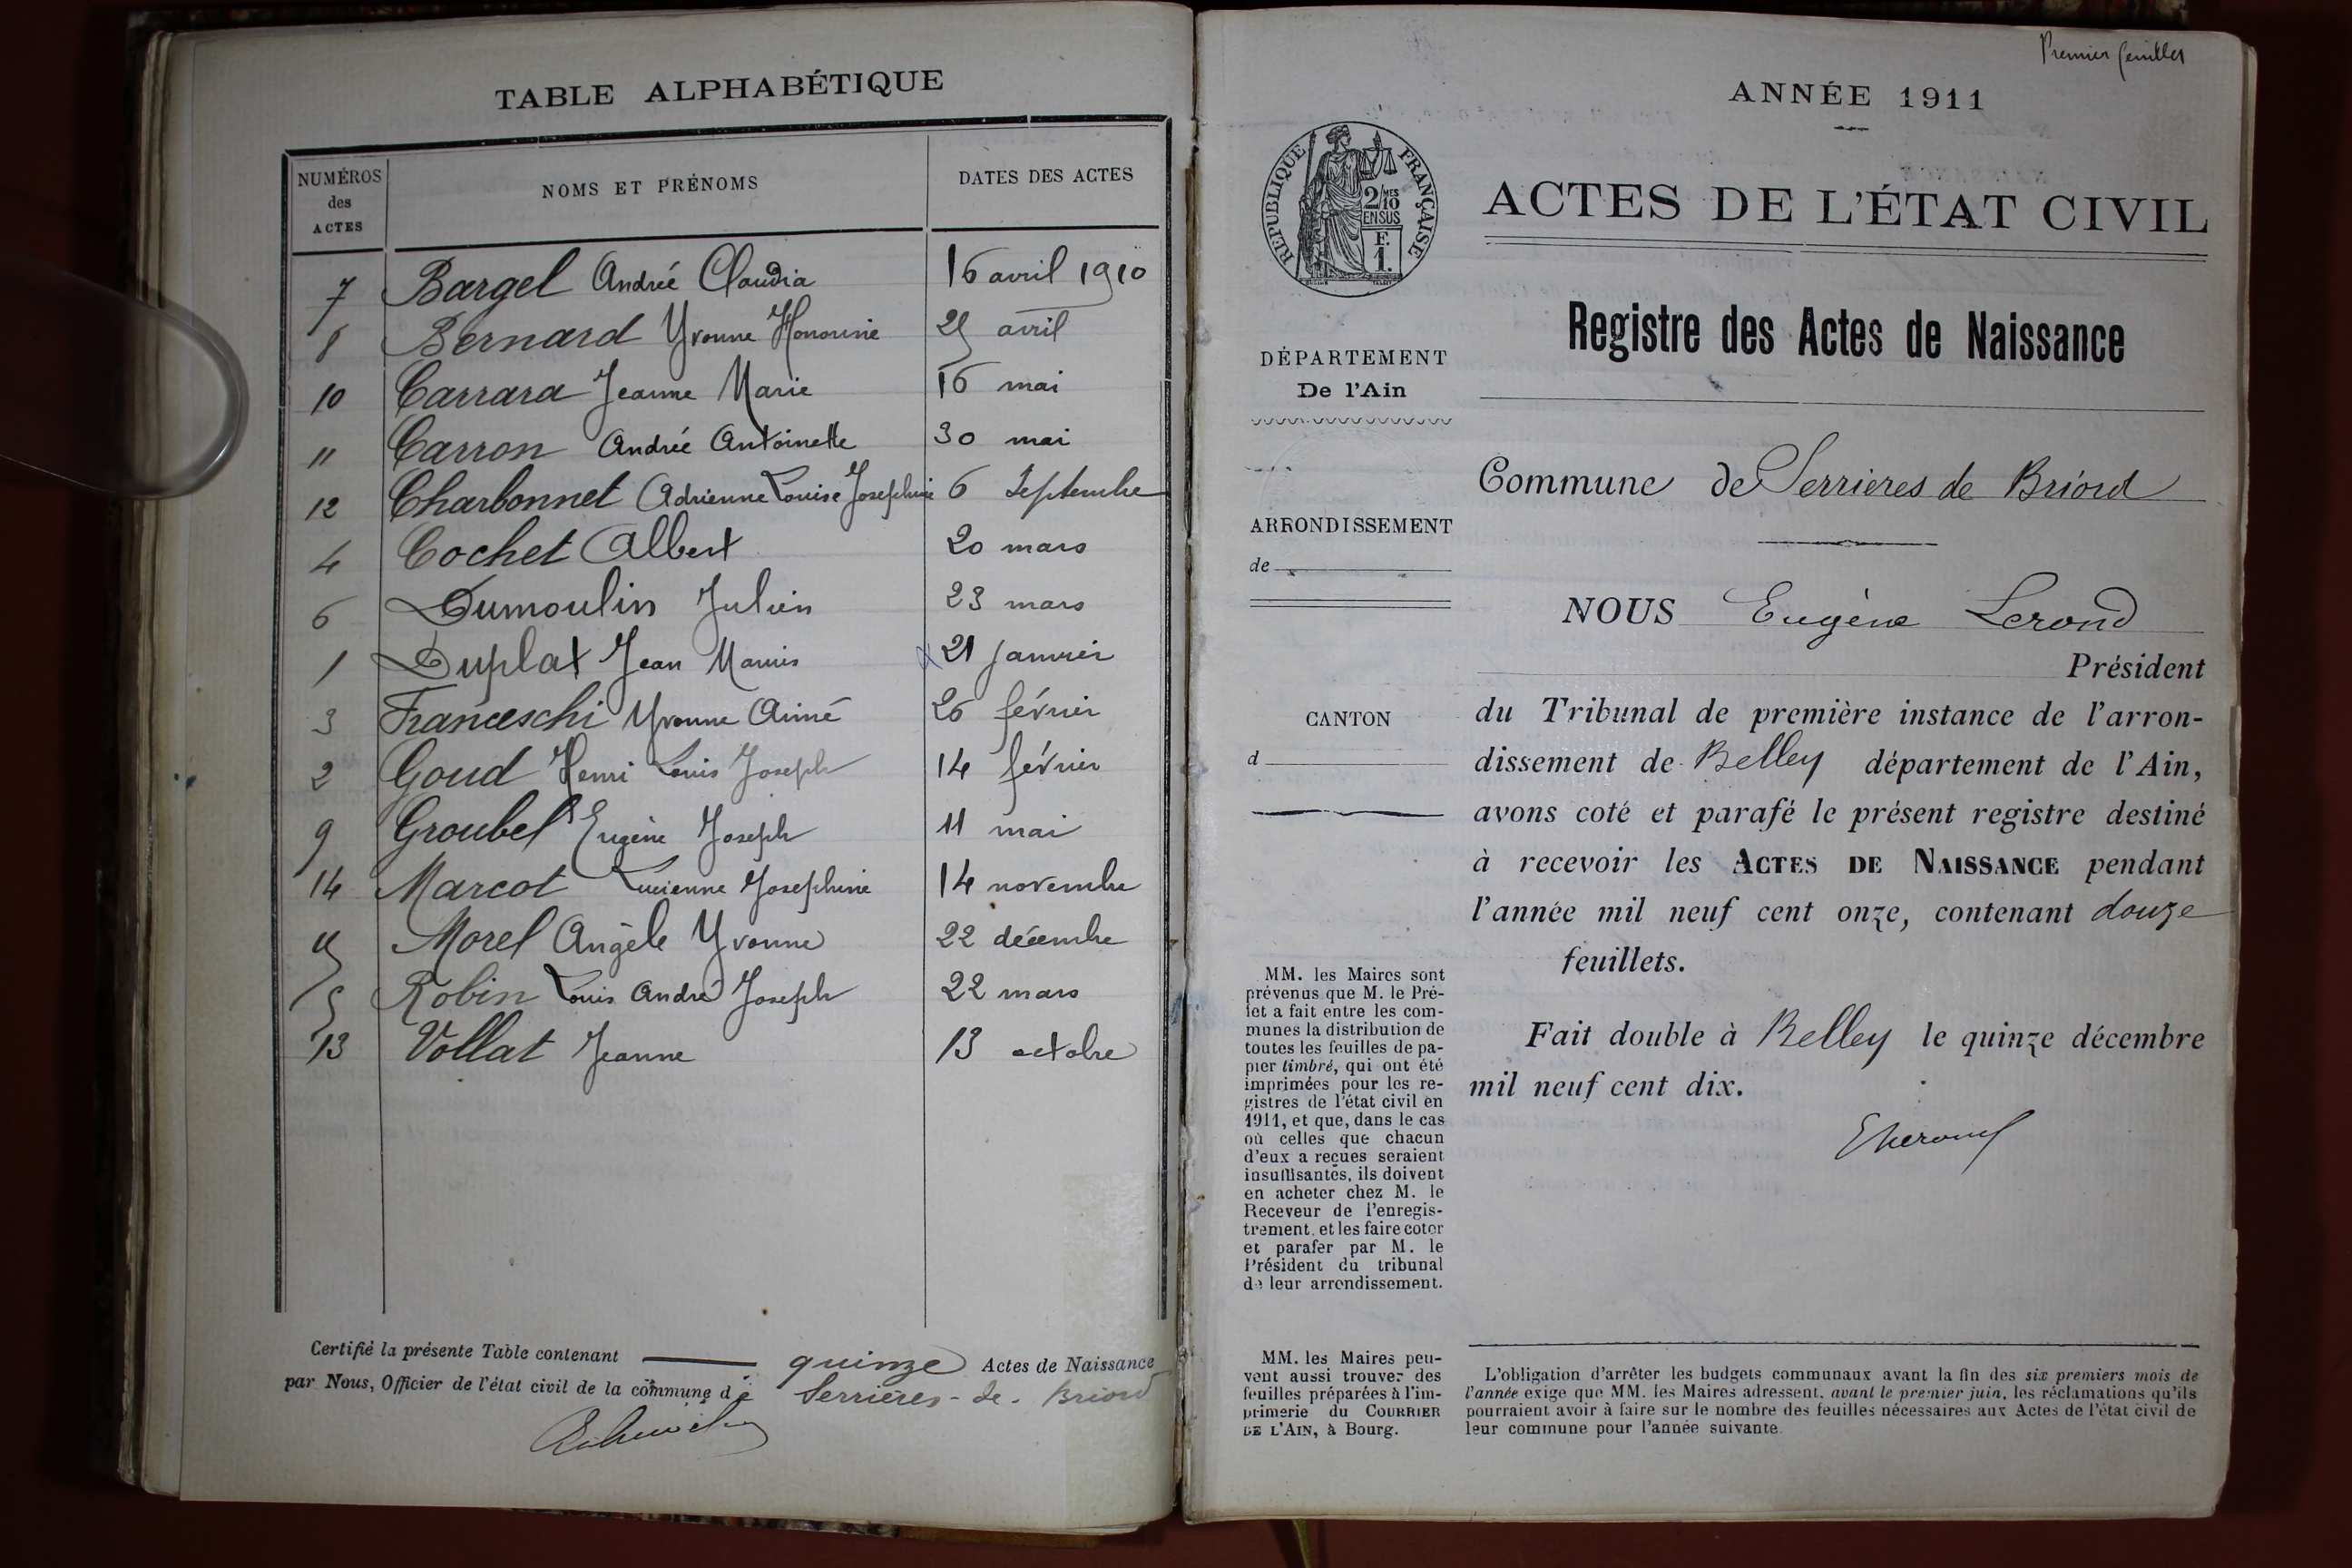 TABLE ALPHABÉTIQUE
NUMÉROS des ACTES NOMS ET PRÉNOMS DATES DES ACTES
7 Bargel Andrée Claudia 16 avril 1910
8 Bernard Yvonne Honorine 25 avril
10 Carrara Jeanne Marie 16 mai
11 Carron Andrée Antoinette 30 mai
12 Charbonnet Adrienne Louise Josephine 6 Septembre
4 Cochet Albert 20 mars
6 Dumoulin Julien 23 mars
1 Duplat Jean Marius 21 janvier
3 Franceschi Yvonne Aimé 26 février
2 Goud Henri Louis Joseph 14 février
9 Groubel Eugène Joseph 11 mai
14 Marcot Lucienne Josephine 14 novembre
15 Morel Angèle Yvonne 22 décembre
5 Robin Louis André Joseph 22 mars
13 Vollat Jeanne 13 octobre
Certifié la présente Table contenant quinze Actes de Naissance
par Nous, Officier de l'état civil de la commune de Serrières-de-Briord
Premier feuillet
ANNÉE 1911
RÉPUBLIQUE FRANÇAISE
2/10 MES
EN SUS
F.
1.
ACTES DE L'ÉTAT CIVIL
Registre des Actes de Naissance
DÉPARTEMENT
De l'Ain
ARRONDISSEMENT
de
CANTON
d
MM. les Maires sont
prévenus que M. le Pré-
fet a fait entre les com-
munes la distribution de
toutes les feuilles de pa-
pier timbré, qui ont été
imprimées pour les re-
gistres de l'état civil en
1911, et que, dans le cas
où celles que chacun
d'eux a reçues seraient
insuffisantes, ils doivent
en acheter chez M. le
Receveur de l'enregis-
trement, et les faire coter
et parafer par M. le
Président du tribunal
de leur arrondissement.
MM. les Maires peu-
vent aussi trouver des
feuilles préparées à l'im-
primerie du COURRIER
DE L'AIN, à Bourg.
Commune de Serrières de Briord
NOUS Eugène Lerond
Président
du Tribunal de première instance de l'arron-
dissement de Belley département de l'Ain,
avons coté et parafé le présent registre destiné
à recevoir les ACTES DE NAISSANCE pendant
l'année mil neuf cent onze, contenant douze
feuillets.
Fait double à Belley le quinze décembre
mil neuf cent dix.
L'obligation d'arrêter les budgets communaux avant la fin des six premiers mois de
l'année exige que MM. les Maires adressent, avant le premier juin, les réclamations qu'ils
pourraient avoir à faire sur le nombre des feuilles nécessaires aux Actes de l'état civil de
leur commune pour l'année suivante.